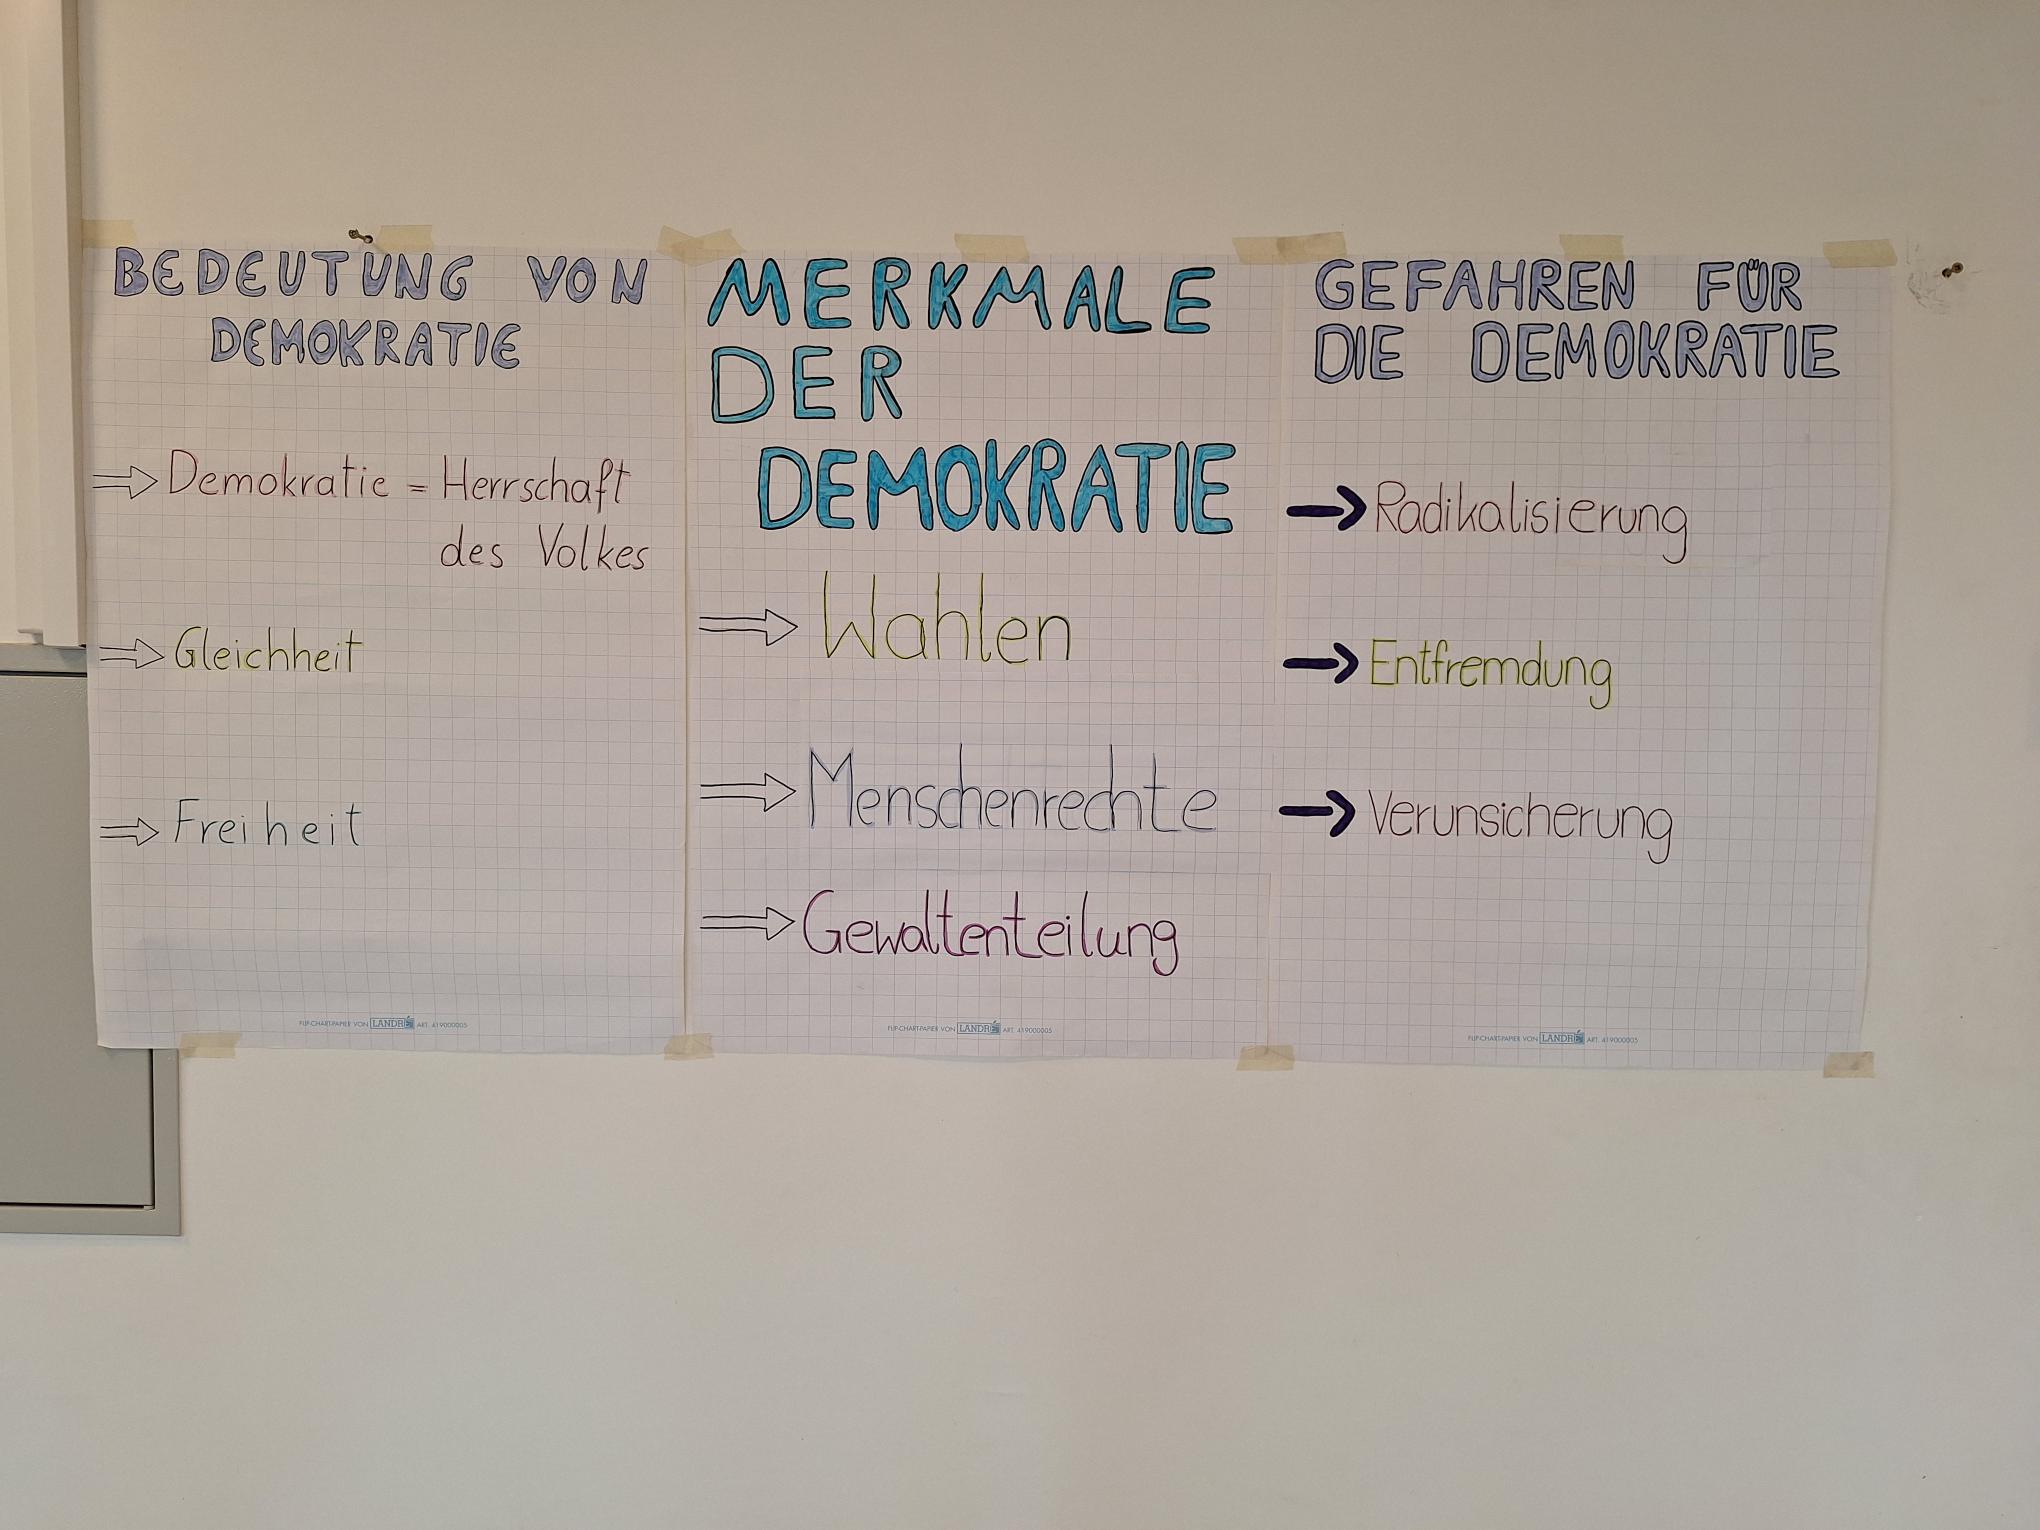 BEDEUTUNG VON
DEMOKRATIE
Demokratie = Herrschaft
des Volkes
Gleichheit
Freiheit
FLIP-CHART-PAPIER VON LANDRÉ ART. 419000005
MERKMALE
DER
DEMOKRATIE
Wahlen
Menschenrechte
Gewaltenteilung
FLIP-CHART-PAPIER VON LANDRÉ ART. 419000005
GEFAHREN FÜR
DIE DEMOKRATIE
Radikalisierung
Entfremdung
Verunsicherung
FLIP-CHART-PAPIER VON LANDRÉ ART. 419000005